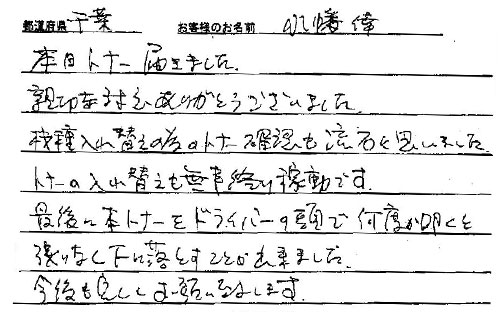 都道府県 千葉 お客様のお名前 八幡 偉
本日トナー届きました。
親切な対応ありがとうございました。
機種入れ替えの為のトナー確認も流石と思いました。
トナーの入れ替えも無事終り稼動です。
最後に本トナーをドライバーの頭で何度か叩くと
残りなく下に落とすことが出来ました。
今後も宜しくお願いします。